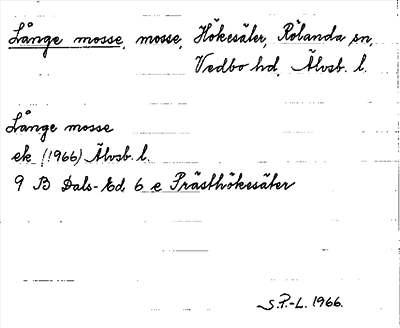 Långe mosse, mosse, Hökesäter, Rölanda sn,
Vedbo hd, Älvsb. l.
Långe mosse
ek (1966) Älvsb. l.
9 B Dals-Ed 6 e Prästhökesäter
S.P.-L. 1966.